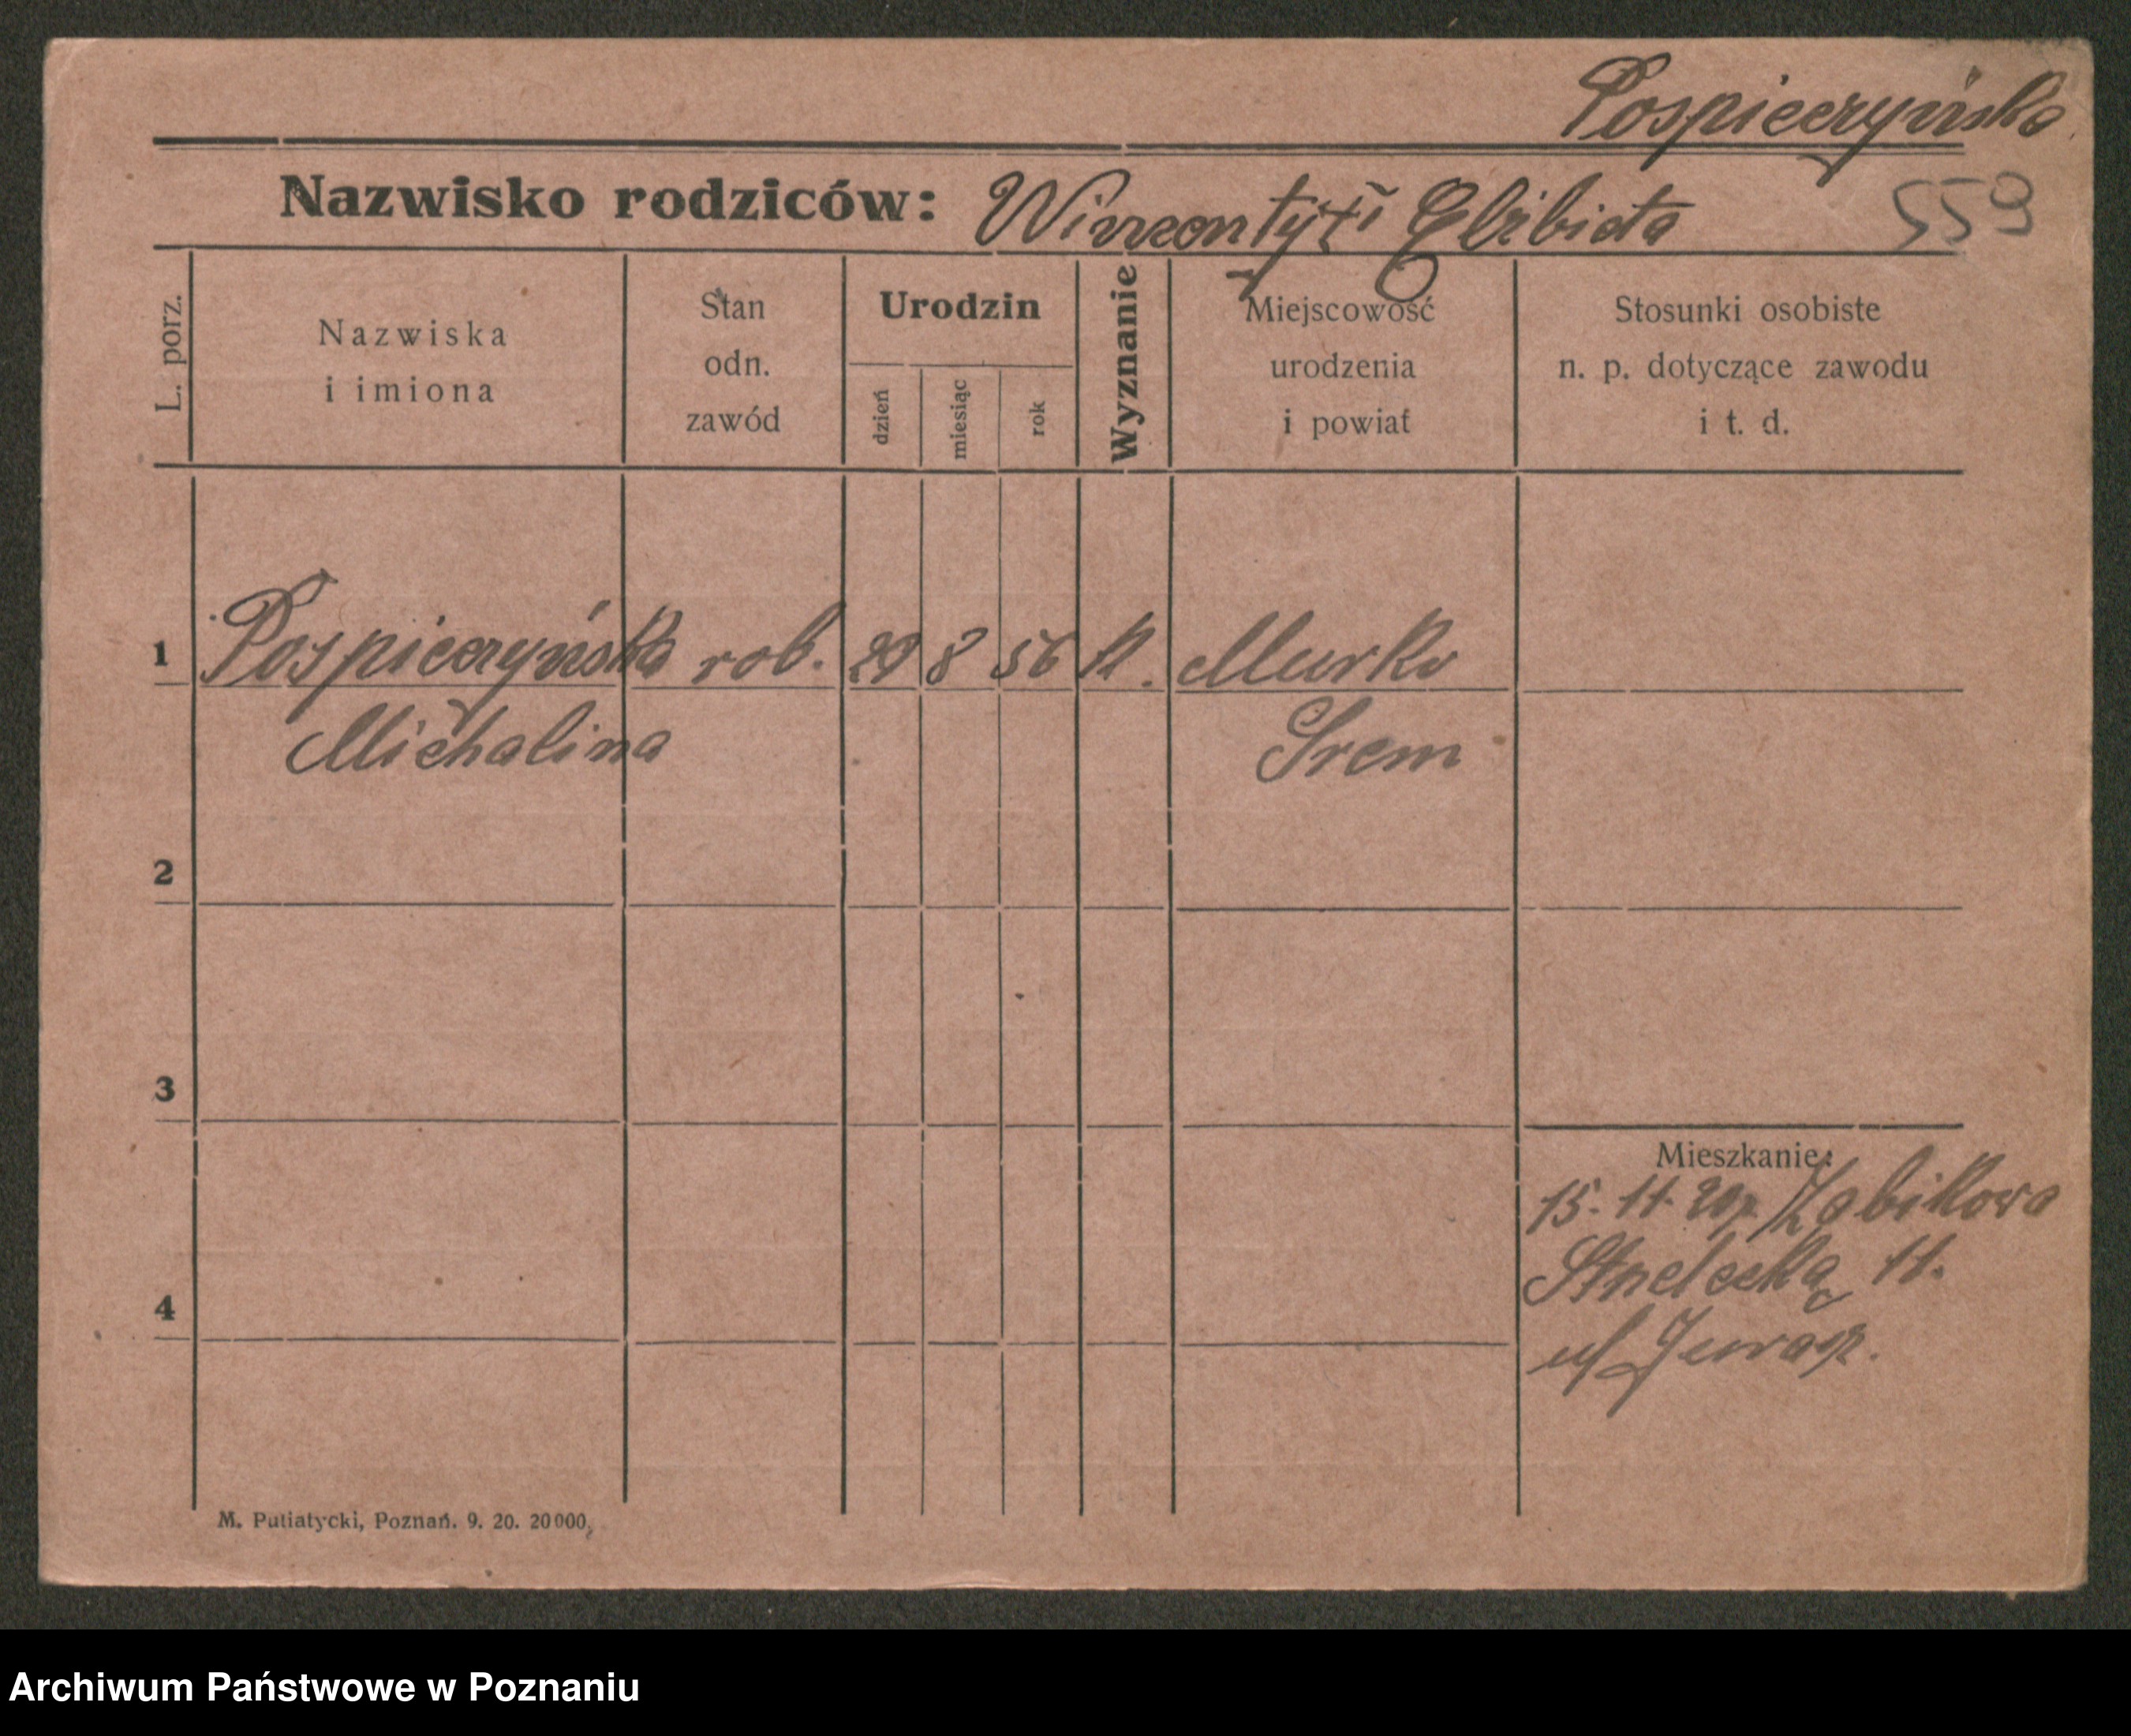 Pospieczyńska
Nazwisko rodziców: Wincenty i Elżbieta 559
L. porz.
Nazwiska
i imiona
Stan
odn.
zawód
Urodzin
dzień
miesiąc
rok
Wyznanie
Miejscowość
urodzenia
i powiat
Stosunki osobiste
n. p. dotyczące zawodu
i t. d.
1 Pospieczyńska rob. 29 8 56 k. Murka
Michalina Srem
2
3
Mieszkanie:
15. 11. Żabikowa
Strzelecka 11.
4
ul
M. Putiatycki, Poznań. 9. 20. 20000.
Archiwum Państwowe w Poznaniu